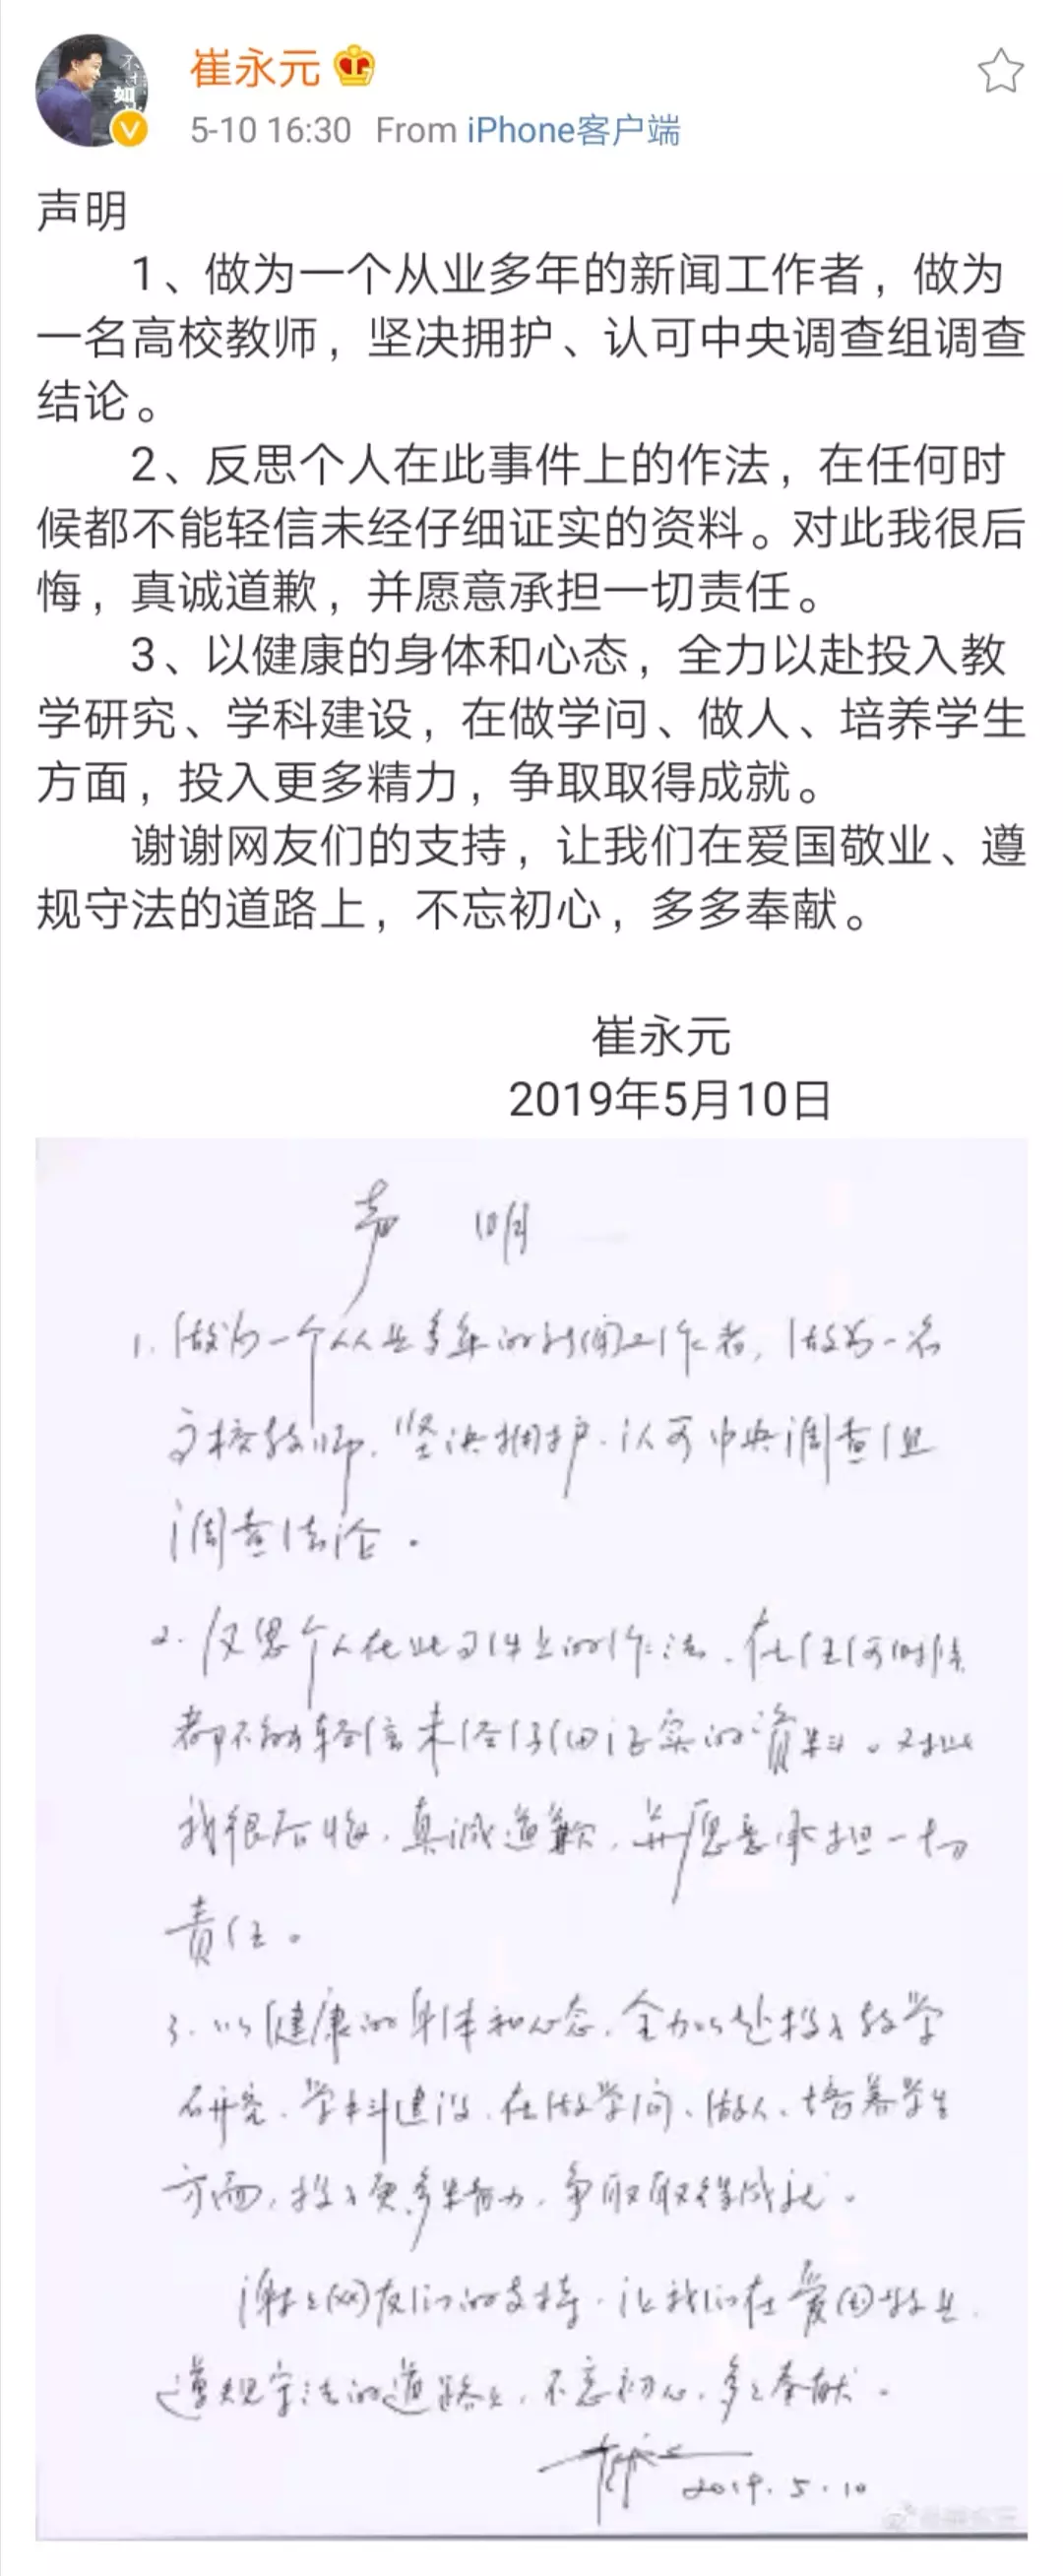 崔永元
5-10 16:30 From iPhone客户端
声明
1、做为一个从业多年的新闻工作者，做为
一名高校教师，坚决拥护、认可中央调查组调查
结论。
2、反思个人在此事件上的作法，在任何时
候都不能轻信未经仔细证实的资料。对此我很后
悔，真诚道歉，并愿意承担一切责任。
3、以健康的身体和心态，全力以赴投入教
学研究、学科建设，在做学问、做人、培养学生
方面，投入更多精力，争取取得成就。
谢谢网友们的支持，让我们在爱国敬业、遵
规守法的道路上，不忘初心，多多奉献。
崔永元
2019年5月10日
声 明
1. 做为一个从业多年的新闻工作者，做为一名
高校教师，坚决拥护、认可中央调查组
调查结论。
2. 反思个人在此事件上的作法，在任何时候
都不能轻信未经仔细证实的资料。对此
我很后悔，真诚道歉，并愿意承担一切
责任。
3. 以健康的身体和心态，全力以赴投入教学
研究、学科建设，在做学问、做人、培养学生
方面，投入更多精力，争取取得成就。
谢谢网友们的支持，让我们在爱国敬业、
遵规守法的道路上，不忘初心，多多奉献。
崔永元
2019.5.10